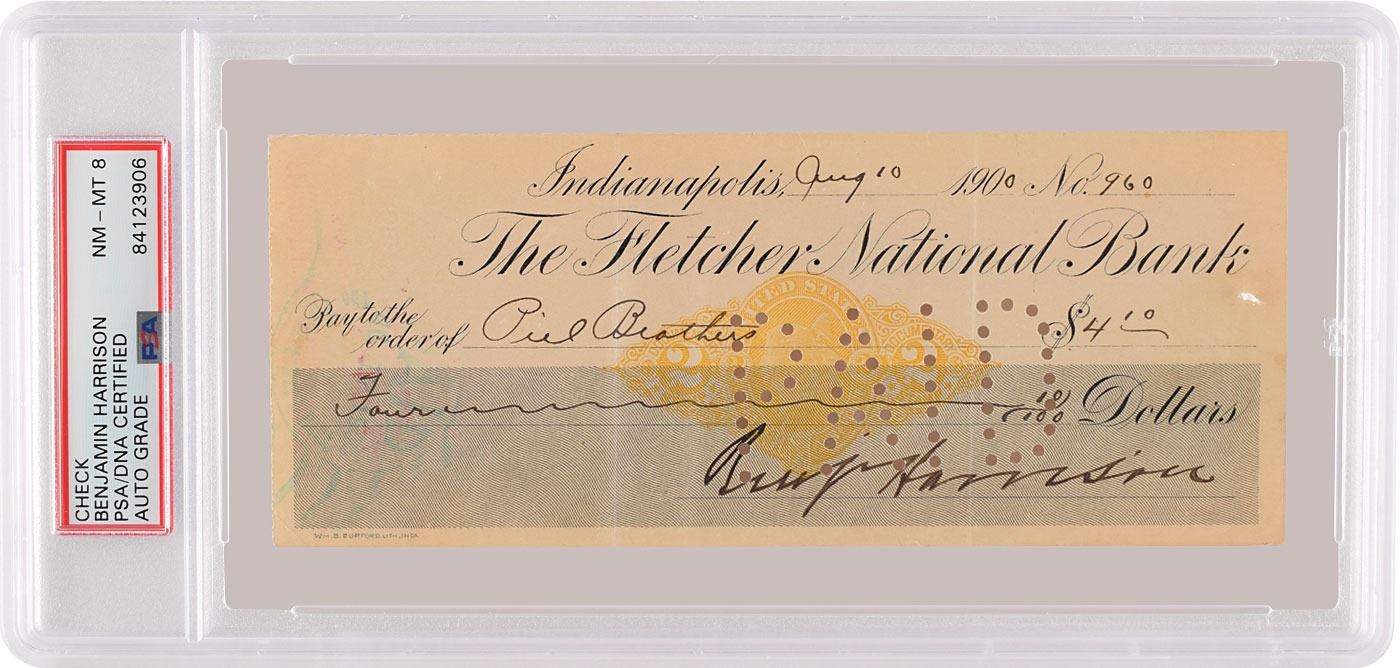 CHECK NM – MT 8
BENJAMIN HARRISON
PSA/DNA CERTIFIED
AUTO GRADE 84123906
PSA
Indianapolis, Aug 10 1900 No. 960
The Fletcher National Bank
Pay to the
order of Piel Brothers $ 4 10
UNITED STA
2 2
Four 10/100 Dollars
Benj Harrison
WM. B. BURFORD, LITH, INDA